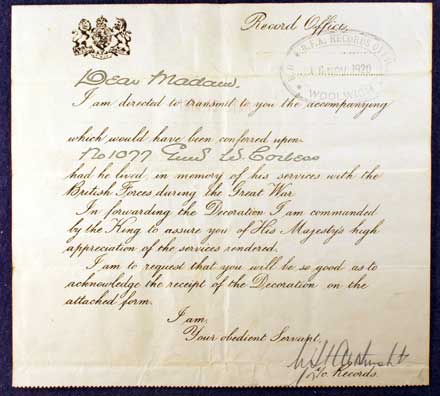 Record Office,
R.F.A. RECORDS OFFICE
16 NOV. 1920
WOOLWICH
Dear Madam.
I am directed to transmit to you the accompanying
which would have been conferred upon
No 1077
had he lived in memory of his services with the
British Forces during the Great War
In forwarding the Decoration I am commanded
by the King to assure you of His Majesty's high
appreciation of the services rendered.
I am to request that you will be so good as to
acknowledge the receipt of the Decoration on the
attached form.
I am,
Your obedient Servant,
Records.